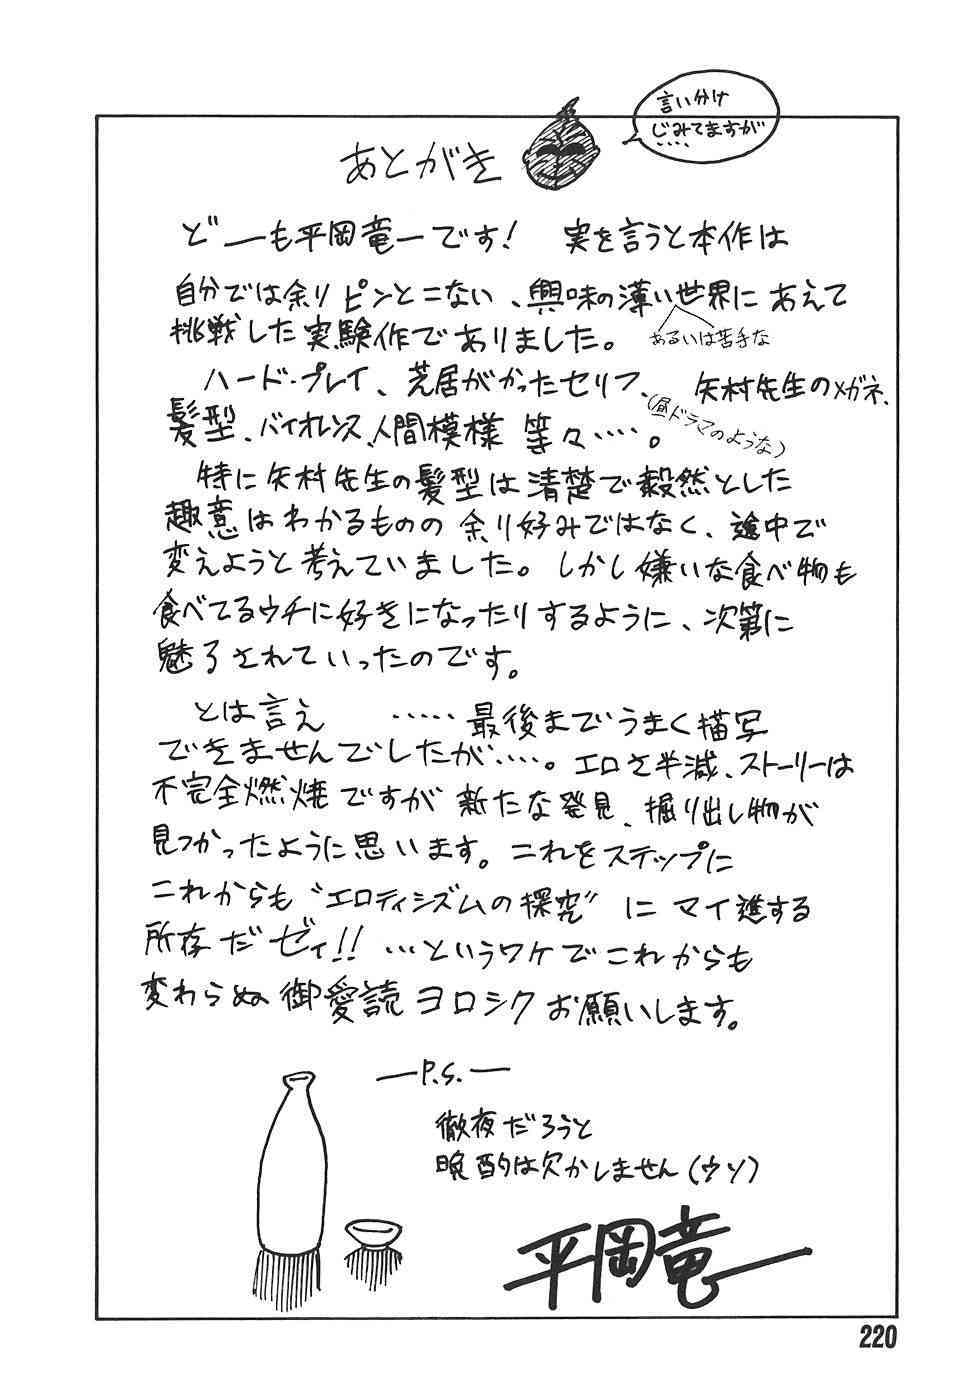 あとがき
言い分け
じみてますが
....
どーも平岡竜一です! 実を言うと本作は
自分では余りピンとこない、興味の薄い世界にあえて
あるいは苦手な
挑戦した実験作でありました。
ハード・プレイ、芝居がかったセリフ、矢村先生のメガネ、
(昼ドラマのような)
髪型、バイオレンス、人間模様 等々‥‥。
特に矢村先生の髪型は清楚で毅然とした
趣意はわかるものの余り好みではなく、途中で
変えようと考えていました。しかし嫌いな食べ物も
食べてるウチに好きになったりするように、次第に
魅了されていったのです。
とは言え ‥‥‥最後までうまく描写
できませんでしたが‥‥。エロさ半減、ストーリーは
不完全燃焼ですが新たな発見、掘り出し物が
見つかったように思います。これをステップに
これからも"エロティシズムの探究"にマイ進する
所存だゼィ!! …というワケでこれからも
変わらぬ御愛読ヨロシクお願いします。
—P.S.—
徹夜だろうと
晩酌は欠かしません(ウソ)
平岡竜一
220